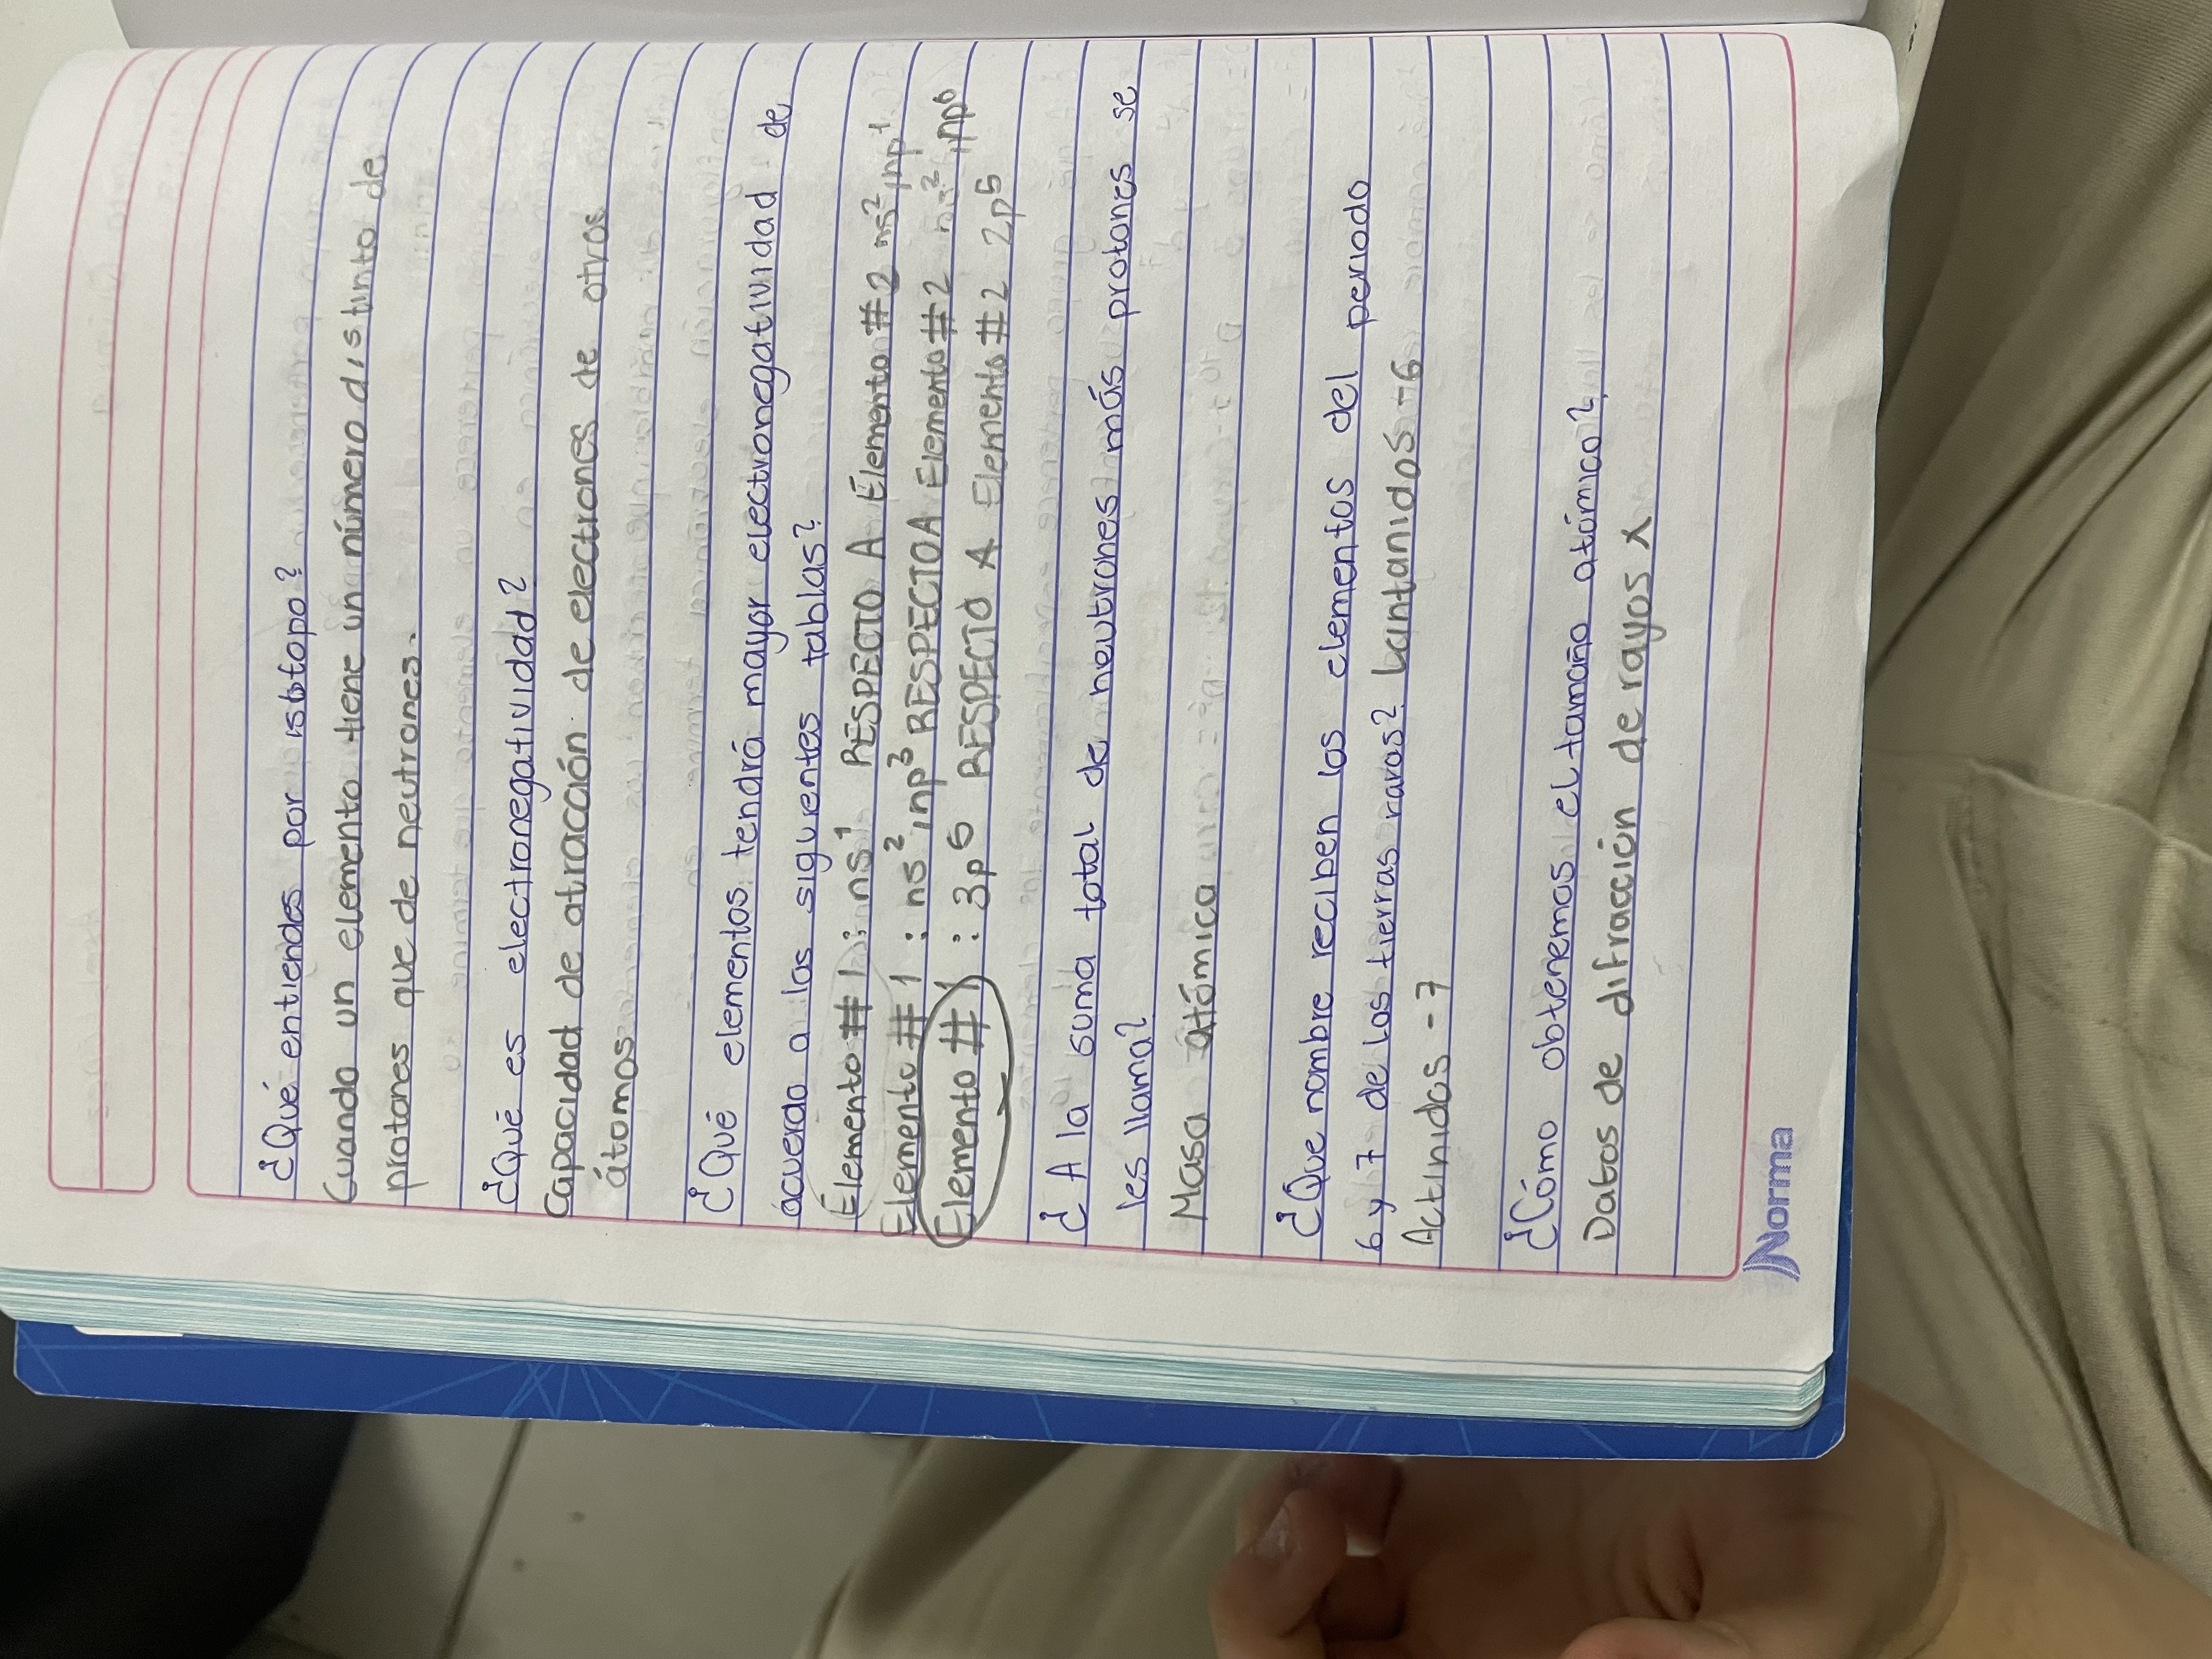 ¿Qué entiendes por isótopo?
Cuando un elemento tiene un número distinto de
protones que de neutrones.
¿Qué es electronegatividad?
Capacidad de atracción de electrones de otros
átomos
¿Qué elementos tendrá mayor electronegatividad de
acuerdo a las siguientes tablas?
Elemento #1: ns¹ RESPECTO A Elemento #2 ns² np¹
Elemento #1: ns² np³ RESPECTO A Elemento #2 ns² np⁶
Elemento #1: 3p⁵ RESPECTO A Elemento #2 2p⁵
¿A la suma total de neutrones más protones se
les llama?
Masa atómica
¿Que nombre reciben los elementos del periodo
6 y 7 de las tierras raras? Lantanidos - 6
Actinidos - 7
¿Cómo obtenemos el tamaño atómico?
Datos de difracción de rayos x
Norma